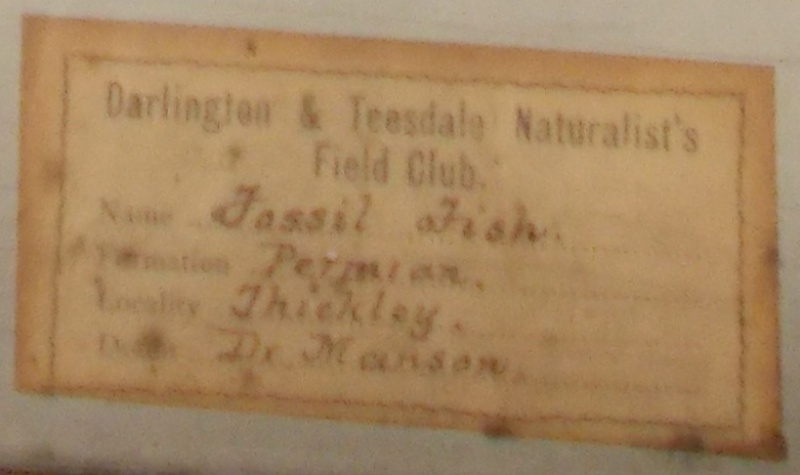 Darlington & Teesdale Naturalist's
Field Club.
Name Fossil Fish.
Formation Permian.
Locality Thickley.
Dr. Manson